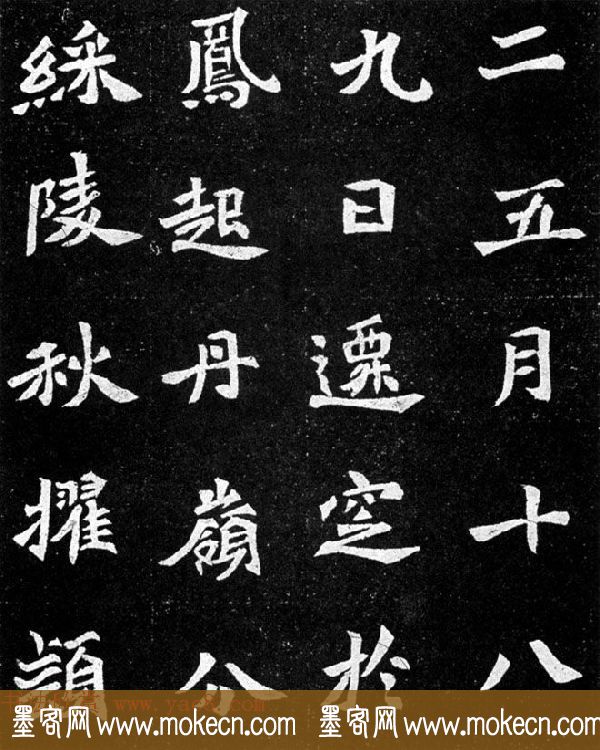 二五月十八
九日遷窆於
鳳起丹嶺
綵陵秋擢
墨客网 www.mokecn.com 墨客网 www.mokecn.com